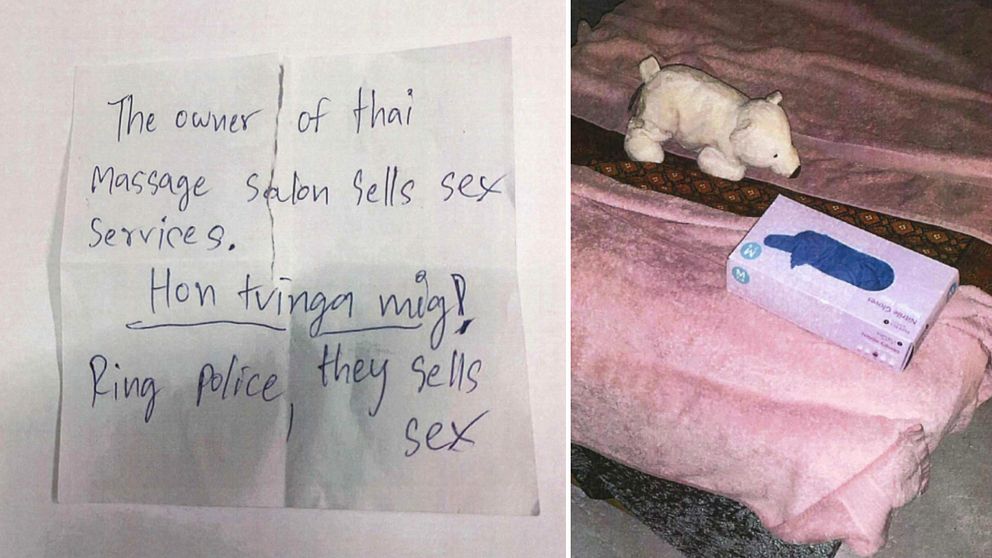 The owner of thai
Massage salon sells sex
services.
Hon tvinga mig!
Ring police, they sells
sex
M
M
Nitrile Gloves